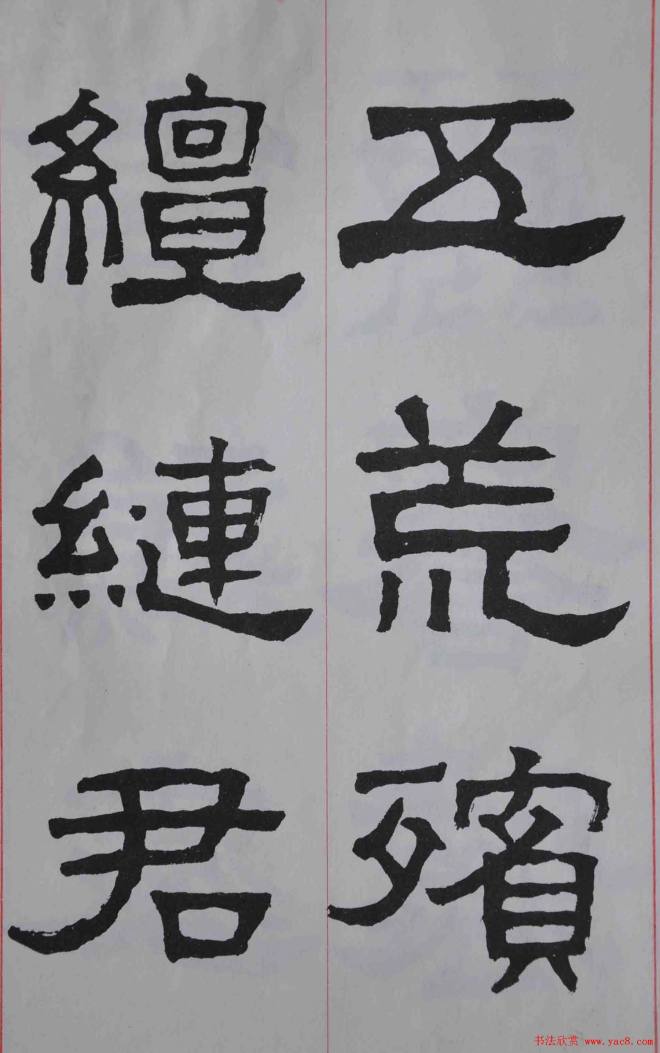 五荒殯
繵縺君
书法欣赏 www.yac8.com